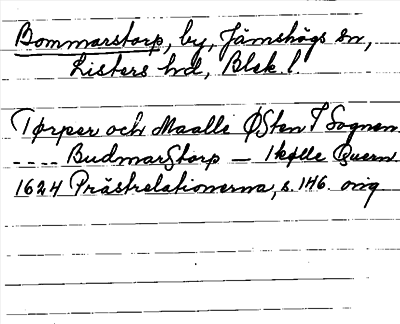 Bommarstorp, by, Jämshögs sn,
Listers hd, Blek l.
Tørper och Maalle ØSten I Sognen
---- BudmarStorp — 1 kølle Quern
1624 Prästrelationerna, s. 146. orig